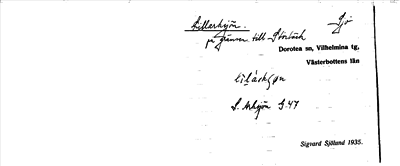 Lillarksjön. Sjö
på gränsen till Storbäck
Dorotea sn, Vilhelmina tg,
Västerbottens län
S. Arksjön S. 47
Sigvard Sjöland 1935.